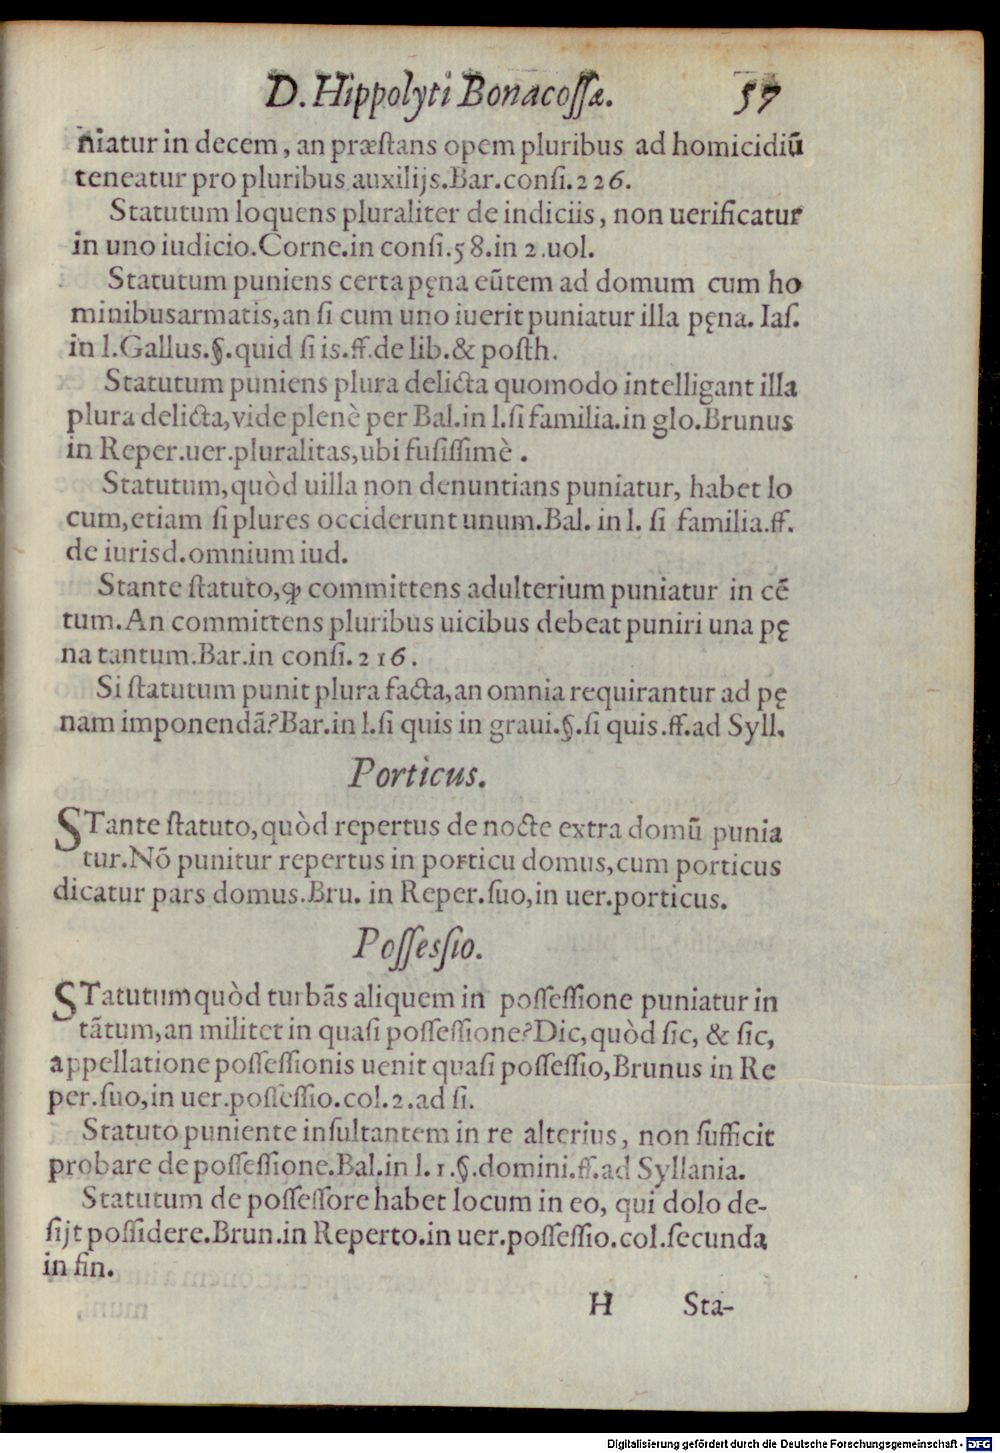 D. Hippolyti Bonacossæ. 57
niatur in decem, an præſtans opem pluribus ad homicidiũ
teneatur pro pluribus auxilijs.Bar.conſi.226.
Statutum loquens pluraliter de indiciis, non uerificatur
in uno iudicio.Corne.in conſi.58.in 2.uol.
Statutum puniens certa pęna eũtem ad domum cum ho
minibus armatis,an ſi cum uno iuerit puniatur illa pęna. Iaſ.
in l.Gallus.§.quid ſi is.ff.de lib.& poſth.
Statutum puniens plura delicta quomodo intelligant illa
plura delicta,vide plenè per Bal.in l.ſi familia.in glo.Brunus
in Reper.uer.pluralitas,ubi fuſiſſimè .
Statutum,quòd uilla non denuntians puniatur, habet lo
cum,etiam ſi plures occiderunt unum.Bal. in l. ſi familia.ff.
de iurisd.omnium iud.
Stante ſtatuto,ꝙ committens adulterium puniatur in cẽ
tum.An committens pluribus uicibus debeat puniri una pę
na tantum.Bar.in conſi.216.
Si ſtatutum punit plura facta,an omnia requirantur ad pę
nam imponendã?Bar.in l.ſi quis in graui.§.ſi quis.ff.ad Syll.
Porticus.
STante ſtatuto,quòd repertus de nocte extra domũ punia
tur.Nõ punitur repertus in porticu domus,cum porticus
dicatur pars domus.Bru. in Reper.ſuo,in uer.porticus.
Poſſesſio.
STatutum quòd turbãs aliquem in poſſeſſione puniatur in
tãtum,an militet in quaſi poſſeſſione?Dic,quòd ſic, & ſic,
appellatione poſſeſſionis uenit quaſi poſſeſſio,Brunus in Re
per.ſuo,in uer.poſſeſſio.col.2.ad ſi.
Statuto puniente inſultantem in re alterius, non ſufficit
probare de poſſeſſione.Bal.in l.1.§.domini.ff.ad Syllania.
Statutum de poſſeſſore habet locum in eo, qui dolo de-
ſijt poſſidere.Brun.in Reperto.in uer.poſſeſſio.col.ſecunda
in fin.
H Sta-
Digitalisierung gefördert durch die Deutsche Forschungsgemeinschaft - DFG